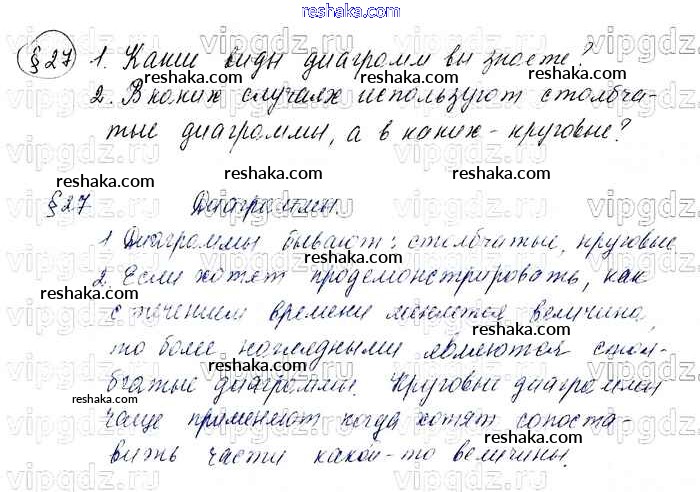 reshaka.com
§27 1. Какие виды диаграмм вы знаете?
reshaka.com reshaka.com
2. В каких случаях используют столбча-
тые диаграммы, а в каких - круговые?
reshaka.com reshaka.com
§27 Диаграммы.
reshaka.com
1 Диаграммы бывают: столбчатые, круговые
reshaka.com
2. Если хотят продемонстрировать, как
reshaka.com
с течением времени меняется величина,
reshaka.com
то более наглядными являются стол-
reshaka.com
бчатые диаграммы. Круговые диаграммы
reshaka.com
чаще применяют когда хотят сопоста-
reshaka.com reshaka.com
вить части какой-то величины.
vipgdz.ru vipgdz.ru vipgdz.ru